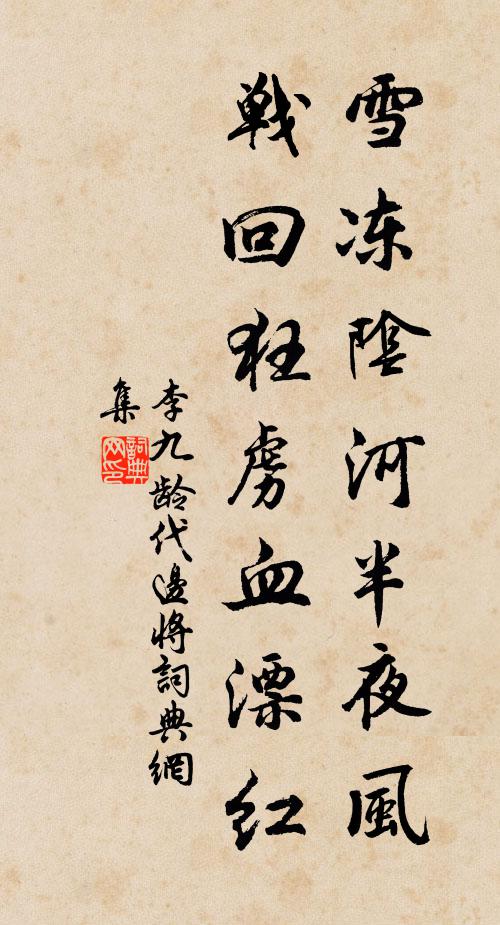 雪冻陰河半夜風
戦回狂虜血漂红
李九龄代邊将詞典網
集
詞典
网印